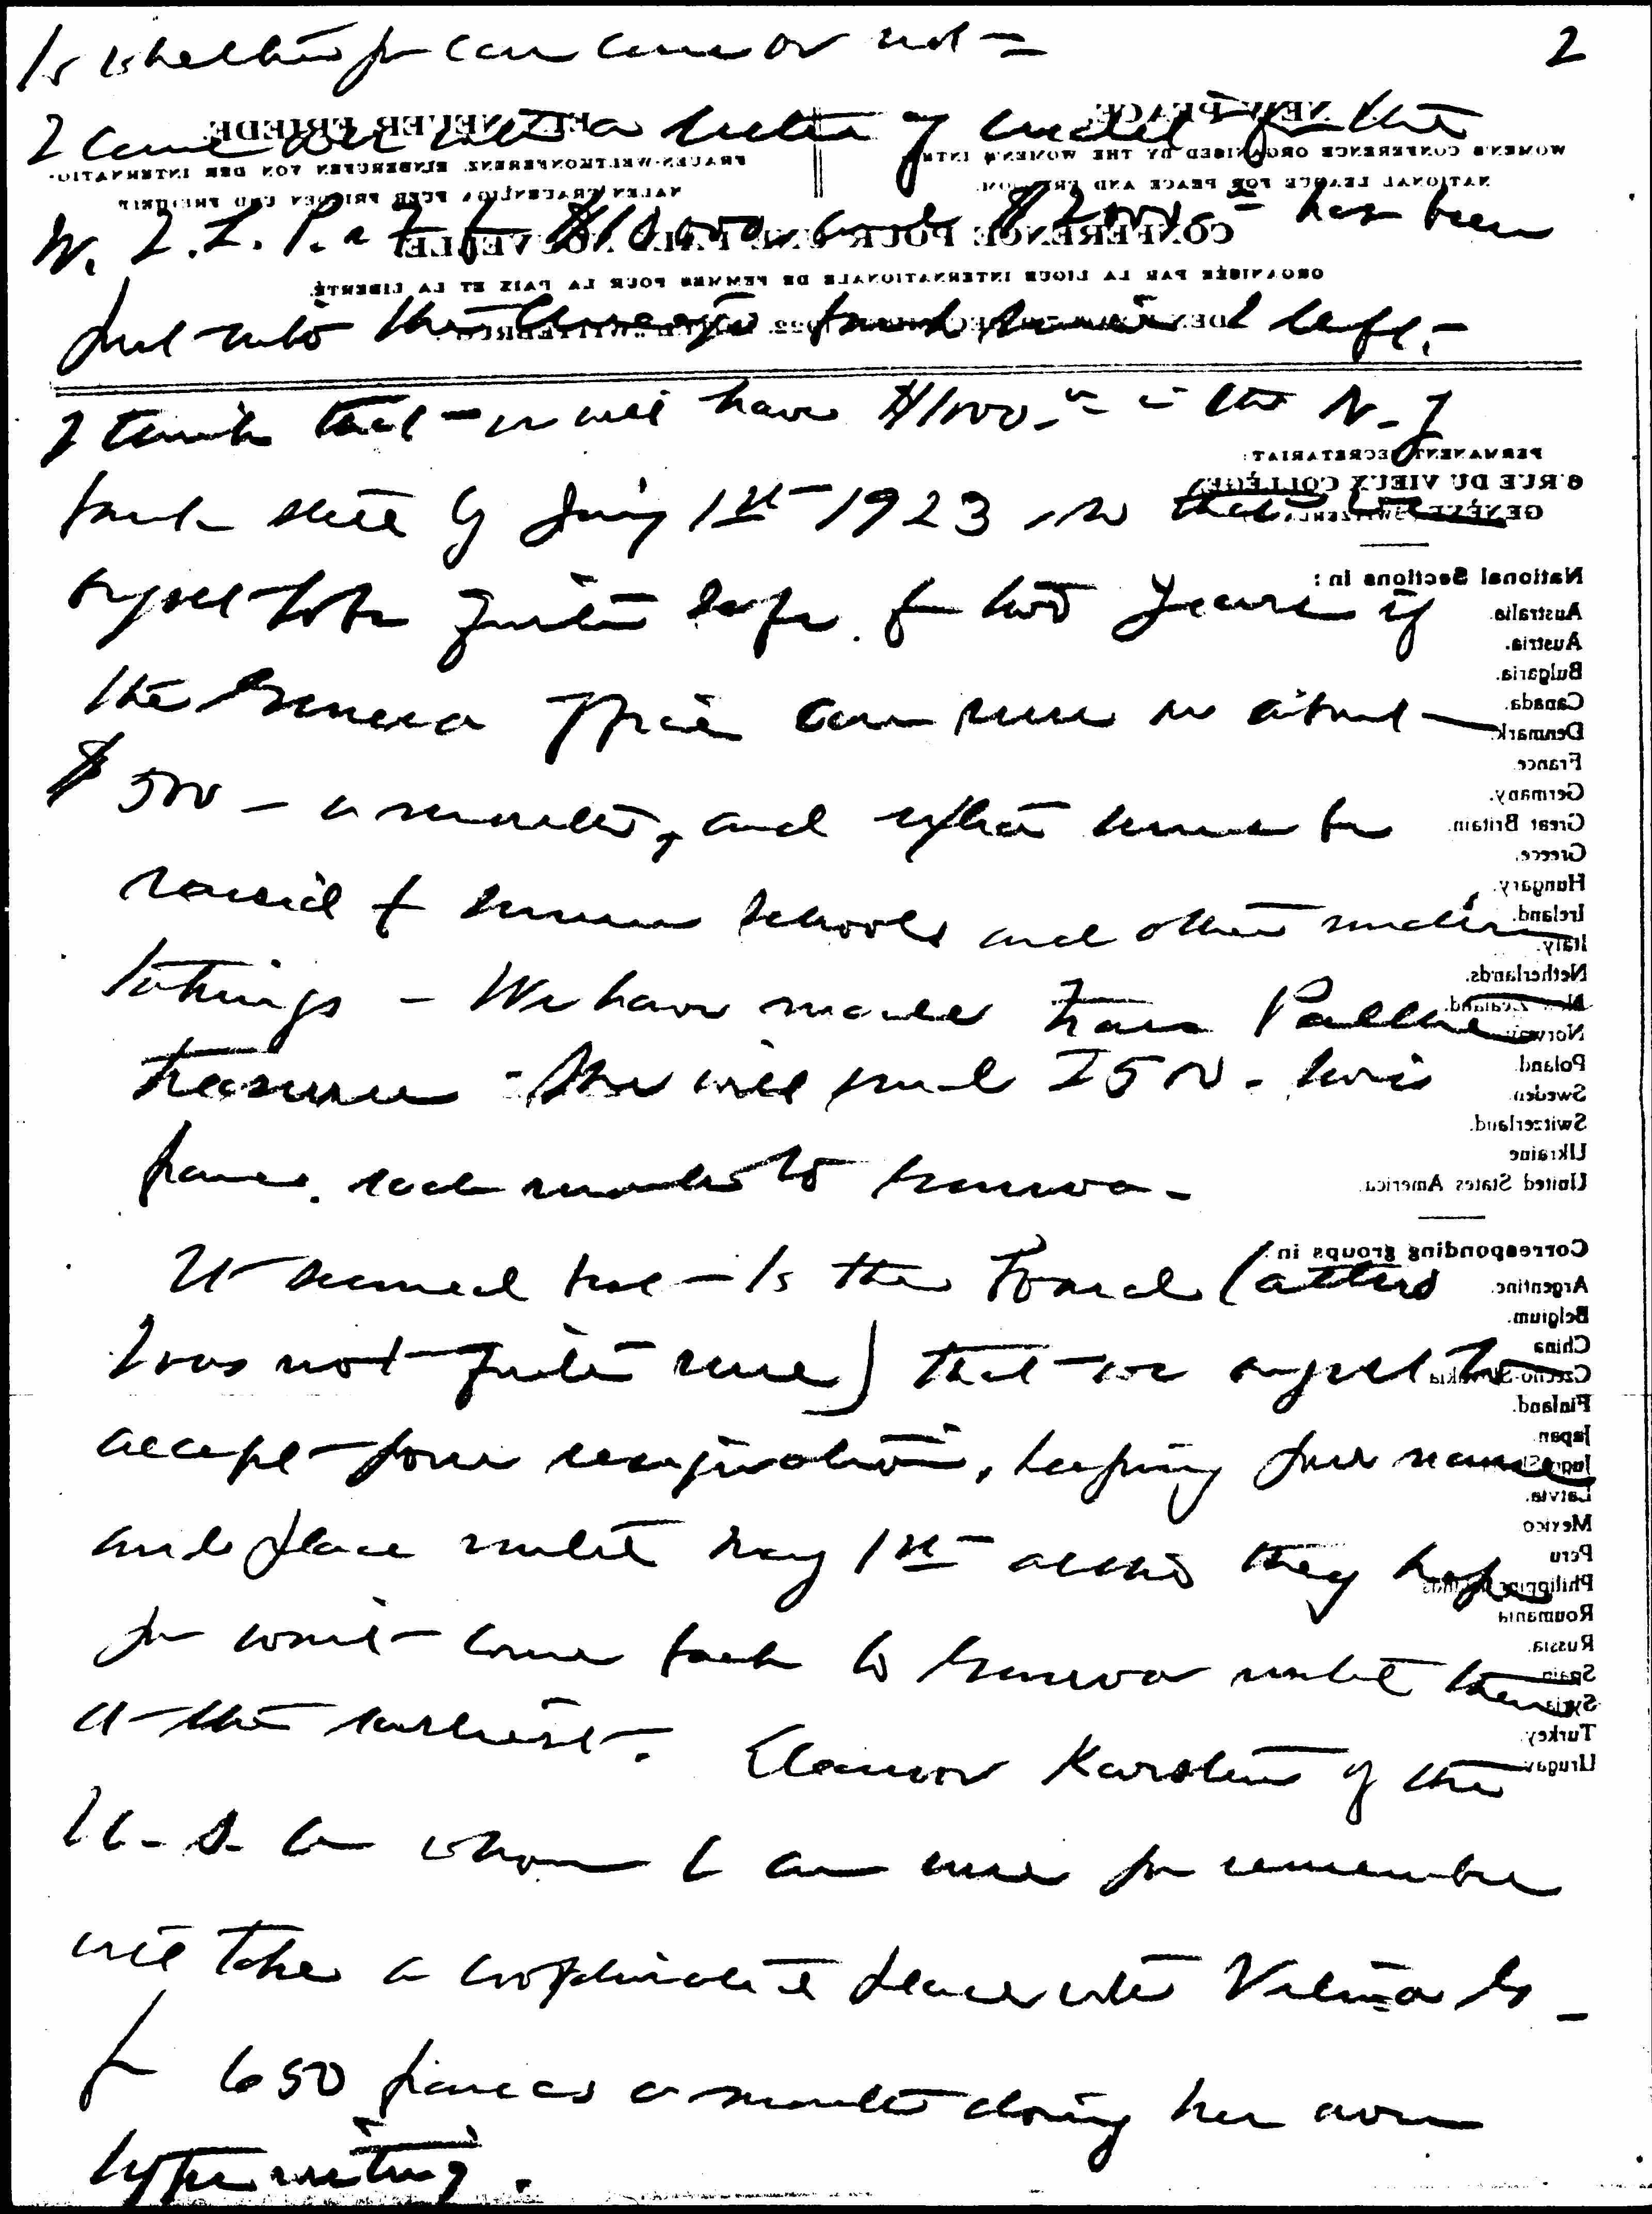 2
as to whether you can come or not =
I came over with a letter of credit for the
W. I. L. P. & F. for $10,000. and $2000 = has been
put into the Chicago bank since I left. -
I think that we will have $1000. in the N. Y.
bank still by July 1st 1923, so that we
expect to be quite safe for two years if
the Geneva office can run on about
$500 - a month, and extra sums be
raised for summer schools and other under
takings - We have made Frau
treasurer - She will send 2500. Swiss
francs each month to Geneva -
It seemed best to the Board (altho
I was not quite sure) that we
accept your resignation, keeping your name
and place until May 1st altho they hope
you won't come back to Geneva until then
at the earliest. Eleanor Karsten of the
U. S. whom I am sure you remember
will take a coordinate place with Vilma
for 650 francs a month doing her own
typewriting.
NEW PEACE
WOMEN'S CONFERENCE ORGANISED BY THE WOMEN'S INTER
NATIONAL LEAGUE FOR PEACE AND FREEDOM.
EIN NEUER FRIEDE
FRAUEN-WELTKONFERENZ, EINBERUFEN VON DER INTERNATIO-
NALEN FRAUENLIGA FUER FRIEDEN UND FREIHEIT
CONFÉRENCE POUR UNE PAIX NOUVELLE
ORGANISÉE PAR LA LIGUE INTERNATIONALE DE FEMMES POUR LA PAIX ET LA LIBERTÉ.
PERMANENT SECRETARIAT:
6 RUE DU VIEUX COLLÈGE
GENÈVE (SWITZERLAND)
National Sections in:
Australia.
Austria.
Bulgaria.
Canada.
Denmark.
France.
Germany.
Great Britain.
Greece.
Hungary.
Ireland.
Italy.
Netherlands.
New Zealand.
Norway.
Poland.
Sweden.
Switzerland.
Ukraine
United States America.
Corresponding groups in:
Argentine.
Belgium.
China
Czecho-Slovakia
Finland.
Japan
Latvia.
Mexico
Peru
Philippine Islands
Roumania
Russia.
Spain
Syria
Turkey.
Uruguay